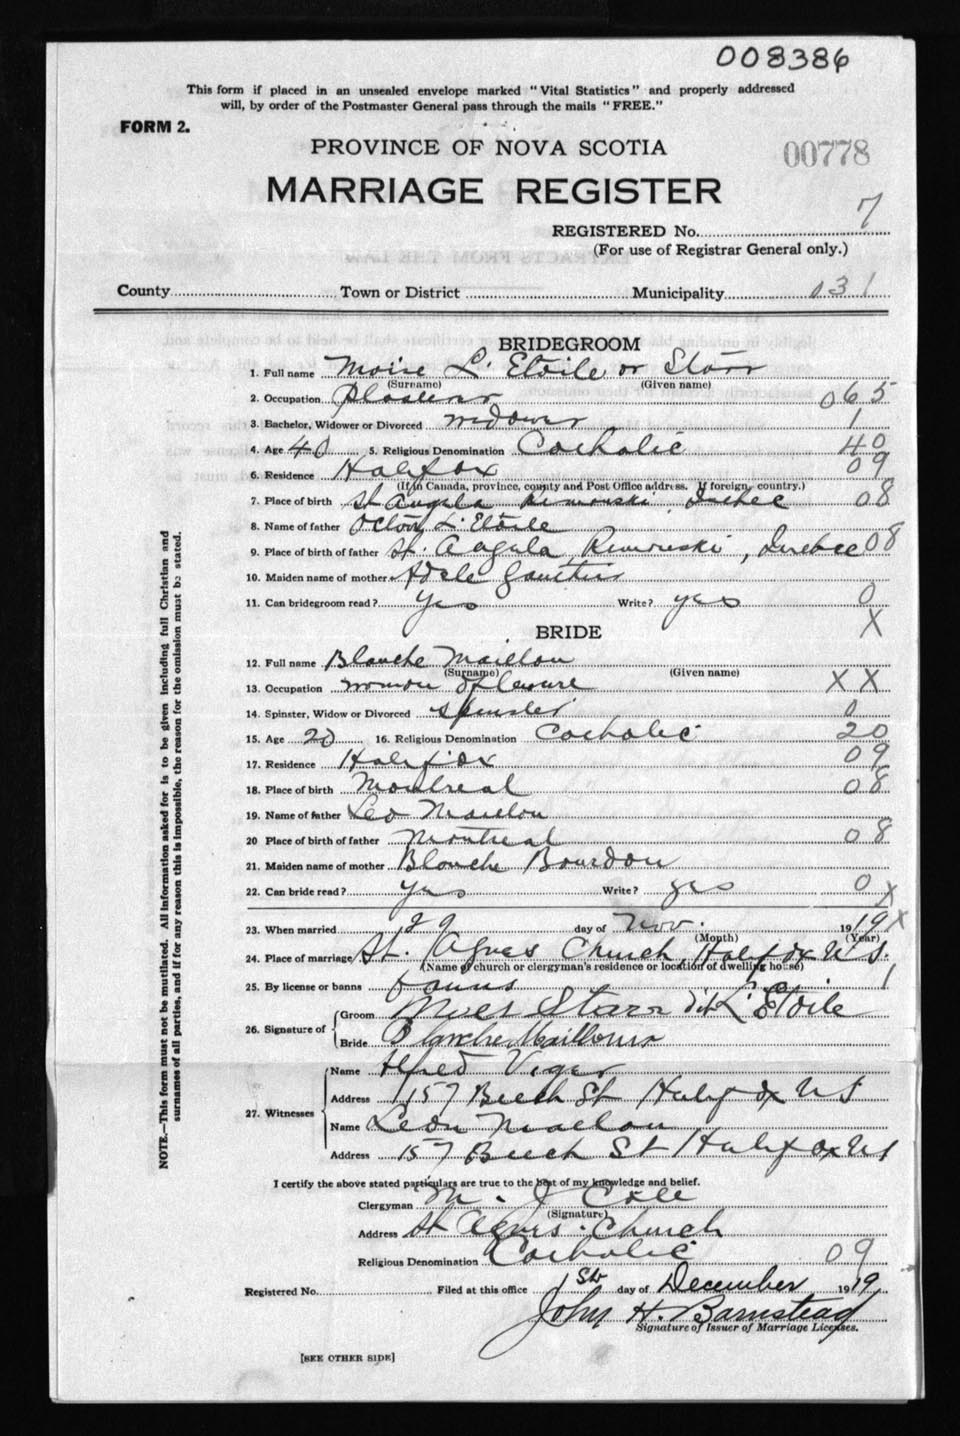 008386
This form if placed in an unsealed envelope marked "Vital Statistics" and properly addressed
will, by order of the Postmaster General pass through the mails "FREE."
FORM 2.
PROVINCE OF NOVA SCOTIA
00778
MARRIAGE REGISTER
7
REGISTERED No.
(For use of Registrar General only.)
County Town or District Municipality 031
BRIDEGROOM
1. Full name Moise L'Etoile or Starr
(Surname) (Given name)
2. Occupation Plasterer 065
3. Bachelor, Widower or Divorced widower 1
4. Age 40 5. Religious Denomination Catholic 40
6. Residence Halifax 09
(If in Canada, province, county and Post Office address. If foreign, country.)
7. Place of birth St Angela Rimouski Quebec 08
8. Name of father L'Etoile
9. Place of birth of father St. Angela Rimouski, Quebec 08
10. Maiden name of mother Adele Gauthier
11. Can bridegroom read? yes Write? yes 0
X
BRIDE
12. Full name Blanche Maillou
(Surname) (Given name)
13. Occupation woman of leisure X X
14. Spinster, Widow or Divorced spinster 0
15. Age 20 16. Religious Denomination Catholic 20
17. Residence Halifax 09
18. Place of birth Montreal 08
19. Name of father Leo Maillou
20 Place of birth of father Montreal 08
21. Maiden name of mother Blanche Bourdon
22. Can bride read? yes Write? yes 0 X
23. When married 29 day of Nov. 1919 X
(Month) (Year)
24. Place of marriage St. Agnes Church, Halifax NS.
(Name of church or clergyman's residence or location of dwelling house)
25. By license or banns banns 1
26. Signature of Groom Starr dit L'Etoile
Bride Blanche Mailhoux
27. Witnesses Name Alfred Viger
Address 157 Beech St Halifax NS
Name Leon
Address 157 Beech St Halifax NS
I certify the above stated particulars are true to the best of my knowledge and belief.
Clergyman M. J Cole
(Signature)
Address St Agnes Church
Religious Denomination Catholic 09
Registered No. Filed at this office 1st day of December 1919
John H. Barnstead
Signature of Issuer of Marriage Licenses.
[SEE OTHER SIDE]
NOTE.—This form must not be mutilated. All information asked for is to be given including full Christian and
surnames of all parties, and if for any reason this is impossible, the reason for the omission must be stated.